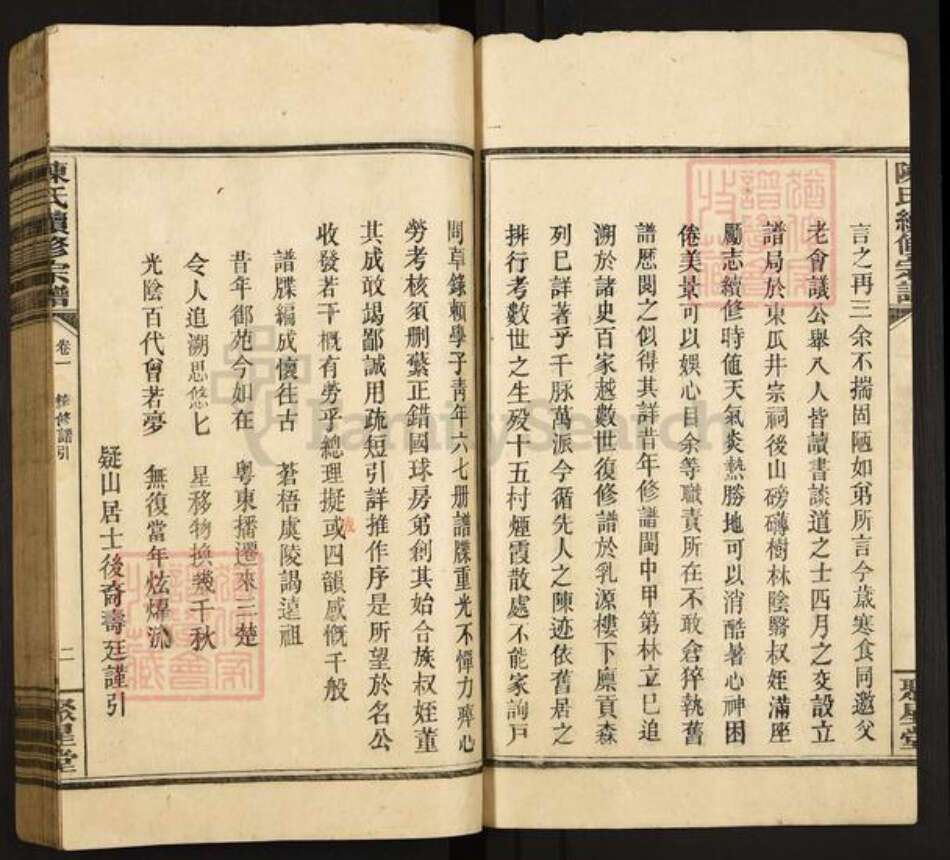 言之再三余不揣固陋如弟所言今歲寒食同邀父
老會議公舉八人皆讀書談道之士四月之交設立
譜局於東瓜井宗祠後山磅礴樹林陰翳叔姪滿座
勵志續修時值天氣炎熱勝地可以消酷暑心神困
倦美景可以娛心目余等職責所在不敢倉猝執舊
譜歷閱之似得其詳昔年修譜閩中甲第林立已追
溯於諸史百家越數世復修譜於乳源樓下廩貢森
列已詳著乎千脉萬派今循先人之陳迹依舊居之
排行考數世之生殁十五村煙霞散處不能家詢戶
問草錄賴學子青年六七册譜牒重光不憚力瘁心
勞考核須刪繁正錯國球房弟創其始合族叔姪董
其成敢竭鄙誠用疏短引詳推作序是所望於名公
收發若干概有勞乎總理擬或四韻感慨千般
譜牒編成懷往古 蒼梧虞陵謁遠祖
昔年鄱苑今如在 粵東播遷來三楚
令人追溯思悠匕 星移物換幾千秋
光陰百代會若夢 無復當年炫燿流
疑山居士後裔壽廷謹引
陳氏續修宗譜
卷一
修譜引
二
聚星堂
陳氏續修宗譜
聚星堂
FamilySearch